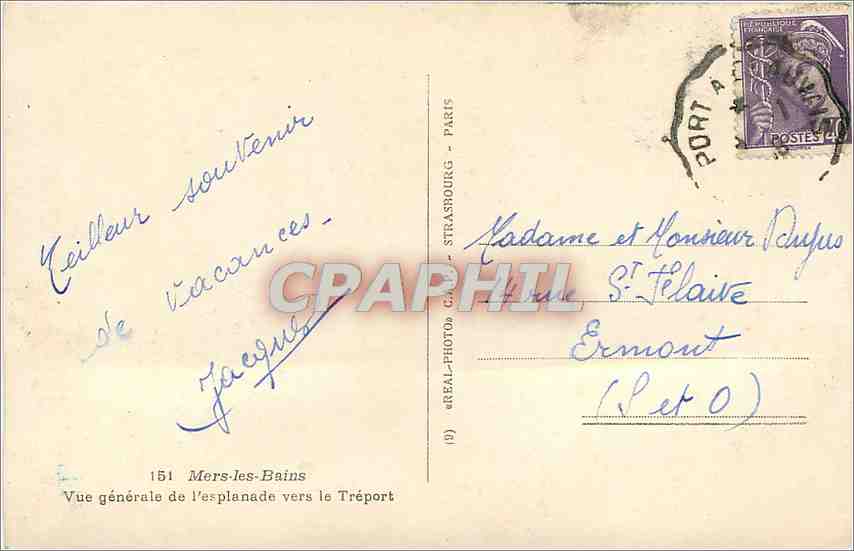 Meilleur souvenir
de vacances -
Jacques
151 Mers-les-Bains
Vue générale de l'esplanade vers le Tréport
(9) «REAL-PHOTO» - STRASBOURG - PARIS
RÉPUBLIQUE
FRANÇAISE
POSTES
PORT A
Madame et Monsieur Dupuis
4 rue St Flaive
Ermont
(S et O)
CPAPHIL